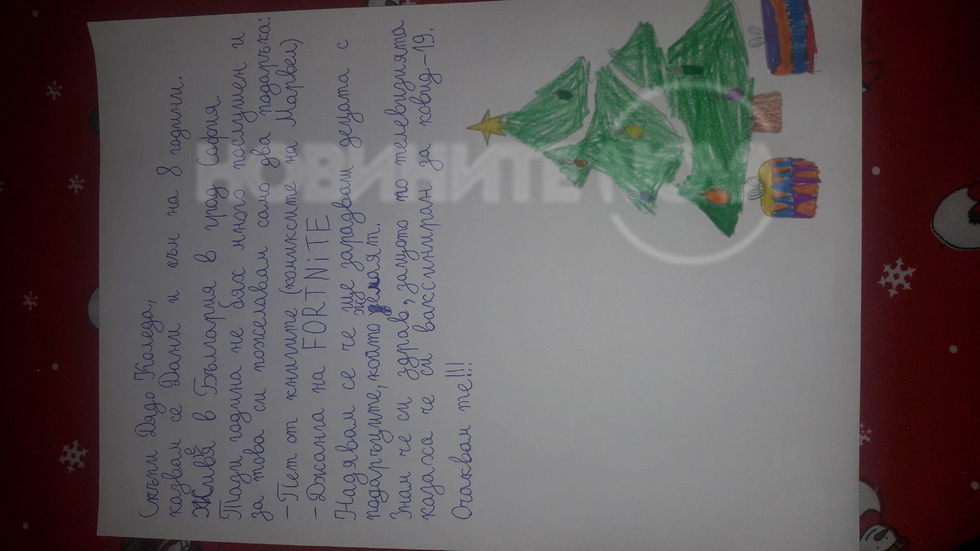 Скъпи Дядо Коледа,
казвам се Дани и съм на 8 години.
Живея в България в град София.
Тази година не бях много послушен и
за това си пожелавам само два подаръка:
- Пет от книгите (комиксите на Марвел)
- Джанга на FORTNiTE
Надявам се че ще зарадваш децата с
подаръците, които желаят.
Знам че си здрав, защото по телевизията
казаха че си ваксиниран за ковид-19.
Очаквам те!!!
НОВИНИТЕ